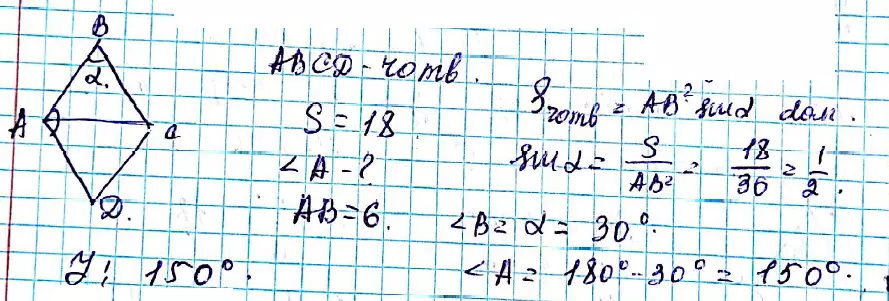 B
α.
A
C
D.
ABCD - ромб.
S = 18
∠A - ?
AB = 6.
Sромб = AB² sin α
sin α = S/AB² = 18/36 = 1/2.
∠B = α = 30°.
∠A = 180° - 30° = 150°.
150°.